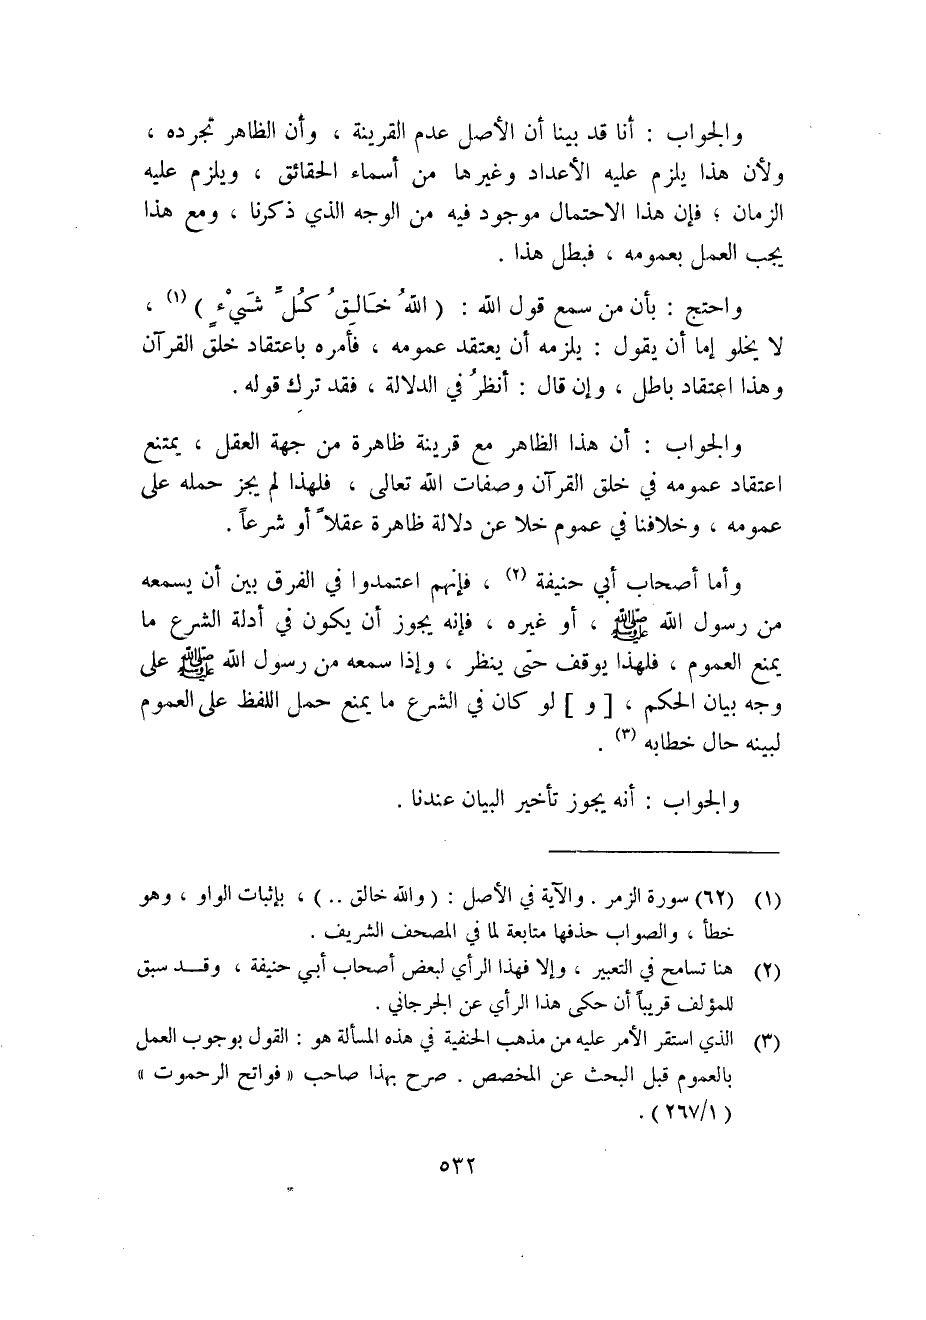 والجواب : أنا قد بينا أن الأصل عدم القرينة ، وأن الظاهر تجرده ،
ولأن هذا يلزم عليه الأعداد وغيرها من أسماء الحقائق ، ويلزم عليه
الزمان ؛ فإن هذا الاحتمال موجود فيه من الوجه الذي ذكرنا ، ومع هذا
يجب العمل بعمومه ، فبطل هذا .
واحتج : بأن من سمع قول الله : ( اللهُ خَالِقُ كُلِّ شَيْءٍ ) (١) ،
لا يخلو إما أن يقول : يلزمه أن يعتقد عمومه ، فأمره باعتقاد خلق القرآن
وهذا اعتقاد باطل ، وإن قال : أنظرُ في الدلالة ، فقد ترك قوله .
والجواب : أن هذا الظاهر مع قرينة ظاهرة من جهة العقل ، يمتنع
اعتقاد عمومه في خلق القرآن وصفات الله تعالى ، فلهذا لم يجز حمله على
عمومه ، وخلافنا في عموم خلا عن دلالة ظاهرة عقلاً أو شرعاً .
وأما أصحاب أبي حنيفة (٢) ، فإنهم اعتمدوا في الفرق بين أن يسمعه
من رسول الله ﷺ ، أو غيره ، فإنه يجوز أن يكون في أدلة الشرع ما
يمنع العموم ، فلهذا يوقف حتى ينظر ، وإذا سمعه من رسول الله ﷺ على
وجه بيان الحكم ، [ و ] لو كان في الشرع ما يمنع حمل اللفظ على العموم
لبينه حال خطابه (٣) .
والجواب : أنه يجوز تأخير البيان عندنا .
(١) (٦٢) سورة الزمر . والآية في الأصل : ( والله خالق .. ) ، بإثبات الواو ، وهو
خطأ ، والصواب حذفها متابعة لما في المصحف الشريف .
(٢) هنا تسامح في التعبير ، وإلا فهذا الرأي لبعض أصحاب أبي حنيفة ، وقد سبق
للمؤلف قريباً أن حكى هذا الرأي عن الجرجاني .
(٣) الذي استقر الأمر عليه من مذهب الحنفية في هذه المسألة هو : القول بوجوب العمل
بالعموم قبل البحث عن المخصص . صرح بهذا صاحب « فواتح الرحموت »
( ٢٦٧/١ ) .
٥٣٢